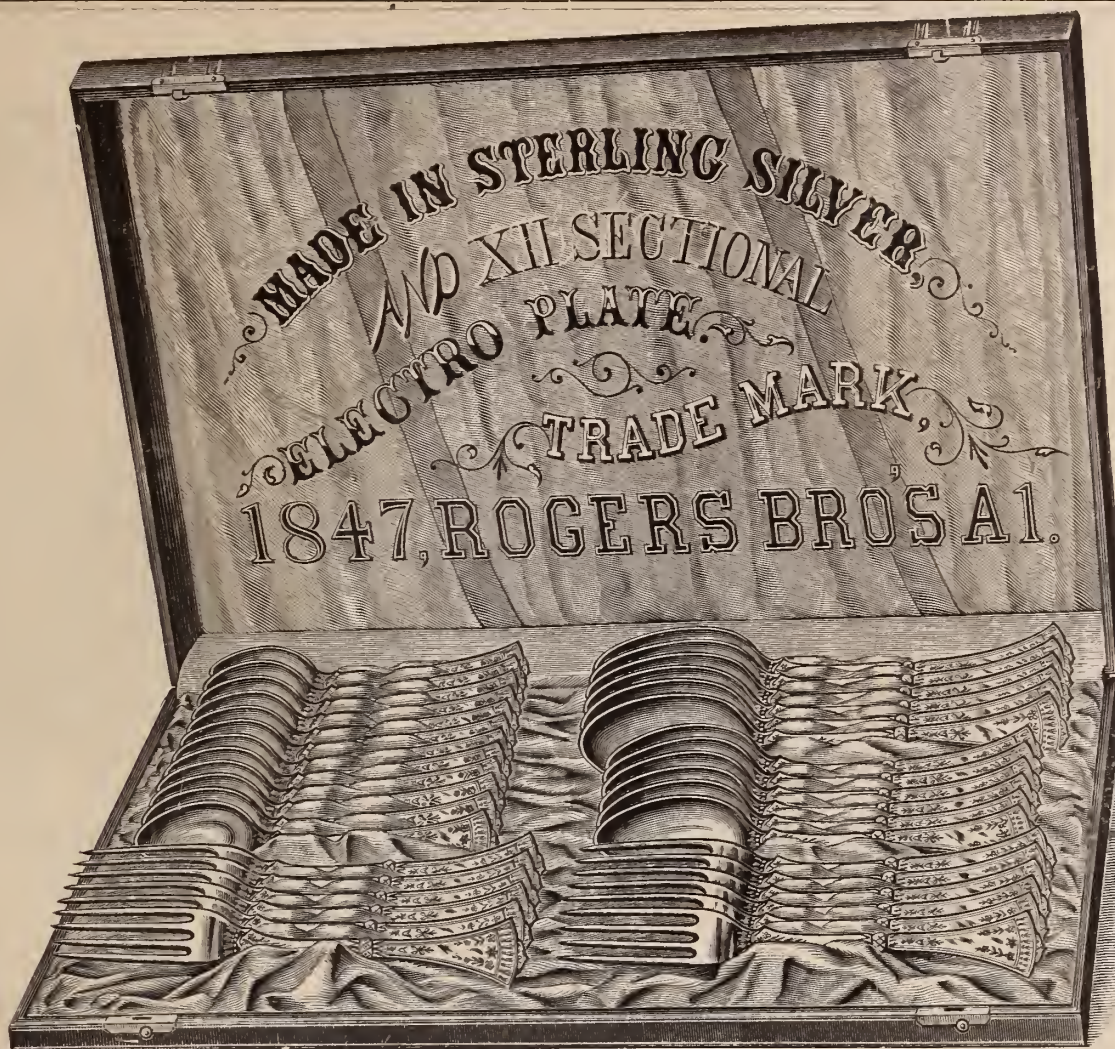 MADE IN STERLING SILVER,
AND XII SECTIONAL
ELECTRO PLATE.
TRADE MARK,
1847, ROGERS BRO'S A1.